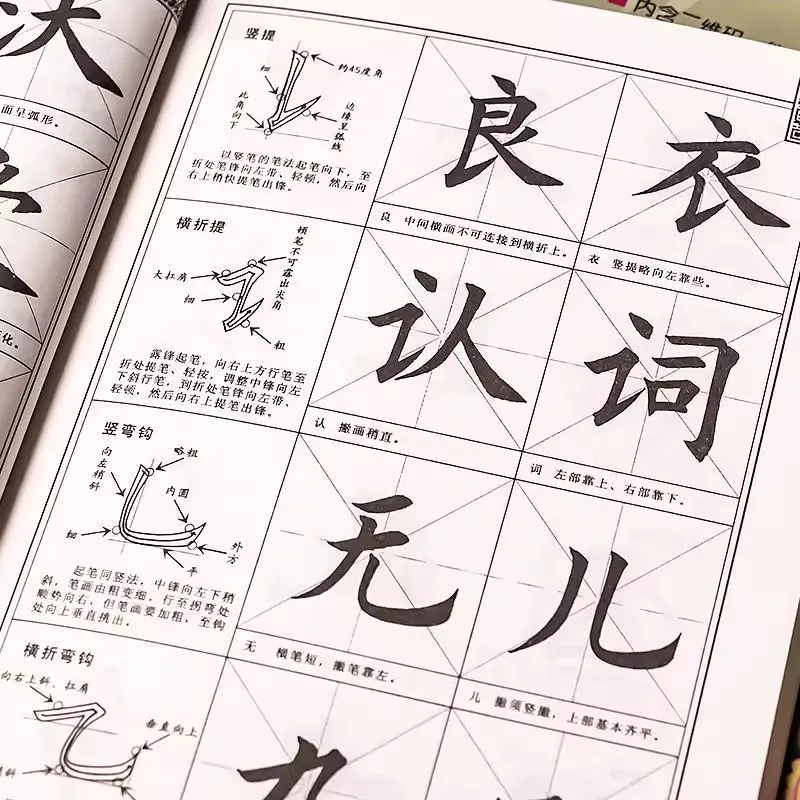 内含二维码
面呈弧形。
化。
竖提
约45度角
细
此角向下
边缘呈弧线
以竖笔的笔法起笔向下，至
折处笔锋向左带、轻顿，然后向
右上稍快提笔出锋。
良
衣
良 中间横画不可连接到横折上。
衣 竖提略向左靠些。
横折提
顿笔不可露出尖角
大扛肩
细
粗
露锋起笔，向右上方行笔至
折处提笔、轻按，调整中锋向左
下斜行笔，到折处笔锋向左带、
轻顿，然后向右上提笔出锋。
认
词
认 撇画稍直。
词 左部靠上、右部靠下。
竖弯钩
略粗
向左稍斜
内圆
细
外方
平
起笔同竖法，中锋向左下稍
斜，笔画由粗变细，行至拐弯处
顺势向右，但笔画要加粗，至钩
处向上垂直挑出。
无
儿
无 横笔短，撇笔靠左。
儿 撇须竖撇，上部基本齐平。
横折弯钩
向右上斜、扛肩
垂直向上
斜
九